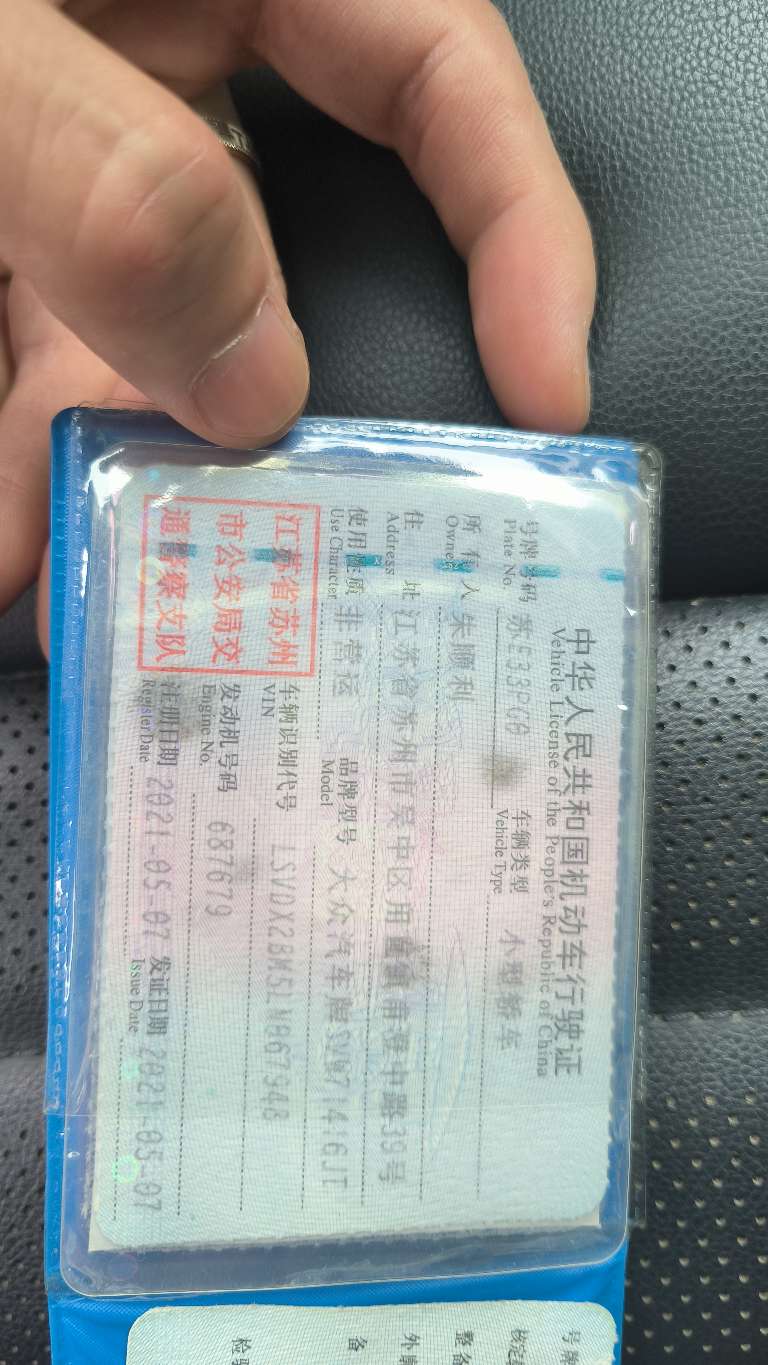 中华人民共和国机动车行驶证
Vehicle License of the People's Republic of China
号牌号码 车辆类型 小型轿车
Plate No. Vehicle Type
所有人 朱顺利
Owner
住 址 江苏省苏州市吴中区甪直镇甫澄中路39号
Address
使用性质 非营运 品牌型号 大众汽车牌SVW71416JT
Use Character Model
江苏省苏州
市公安局交
通警察支队
车辆识别代号 LSVDX2BM5LN867948
VIN
发动机号码 687679
Engine No.
注册日期 2021-05-07 发证日期 2021-05-07
Register Date Issue Date
号牌
核定
整备
外
备
检验